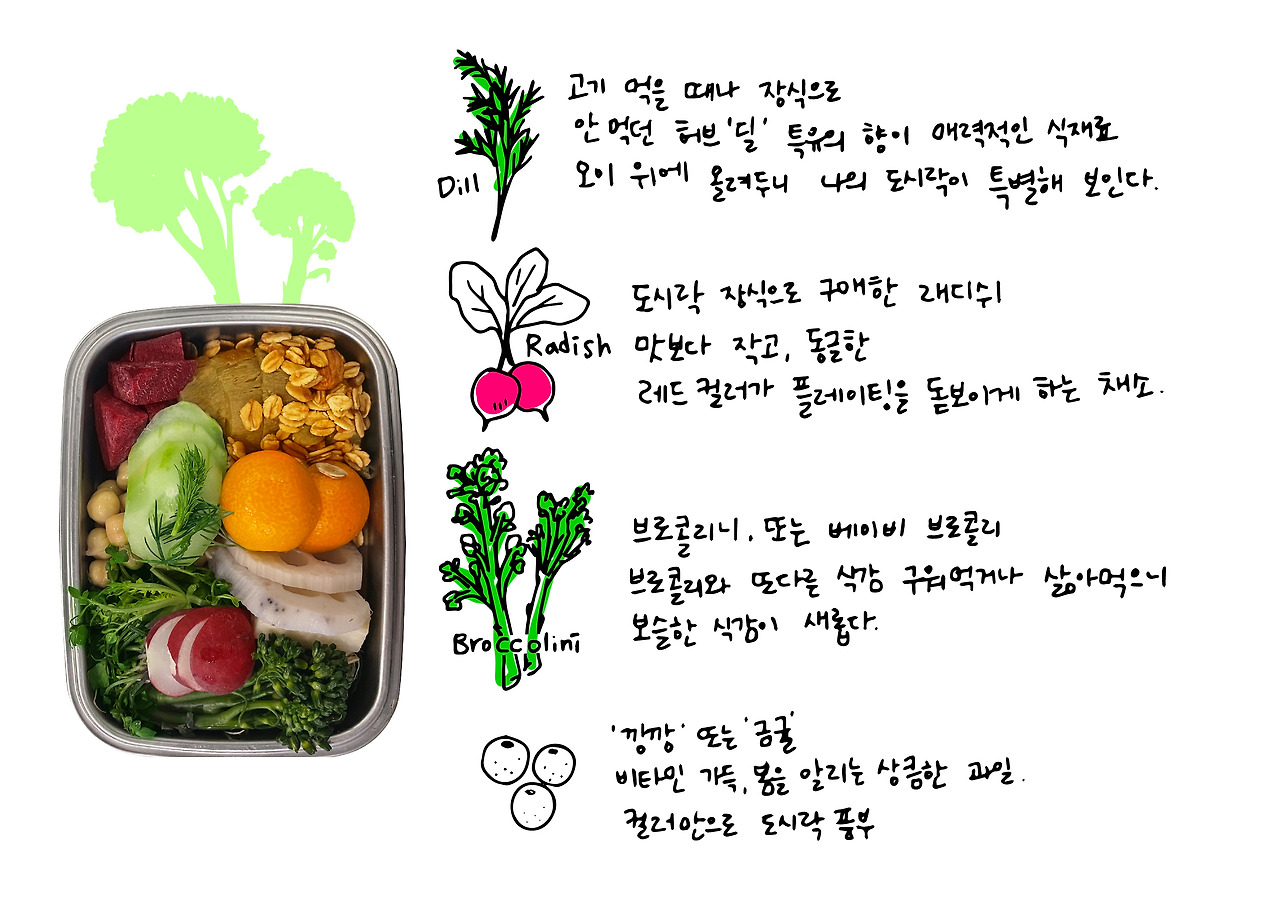 Dill
고기 먹을 때나 장식으로
안 먹던 허브 '딜' 특유의 향이 매력적인 식재료
오이 위에 올려두니 나의 도시락이 특별해 보인다.
Radish
도시락 장식으로 구매한 래디쉬
맛보다 작고, 동글한
레드 컬러가 플레이팅을 돋보이게 하는 채소.
Broccolini
브로콜리니, 또는 베이비 브로콜리
브로콜리와 또다른 식감 구워먹거나 삶아먹으니
보슬한 식감이 새롭다.
'낑깡' 또는 '금귤'
비타민 가득, 봄을 알리는 상큼한 과일.
컬러만으로 도시락 풍부